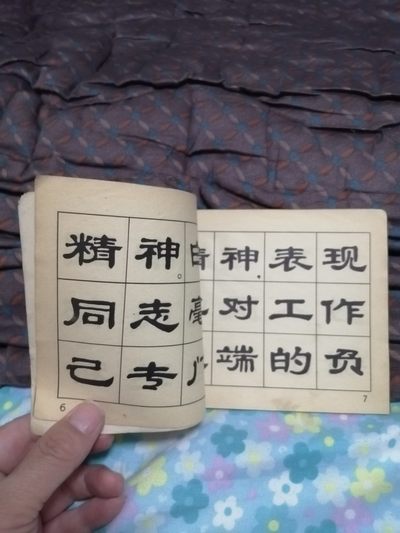 精神。
同志毫
己专
6
神.表现
对工作
端的负
7